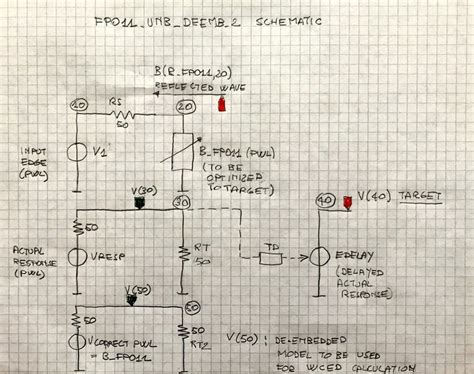 FP011_UNB_DEEMB_2 SCHEMATIC
B(B_FP011,20)
REFLECTED WAVE
10
RS
50
20
INPUT
EDGE
(PWL)
V1
B_FP011 (PWL)
(TO BE
OPTIMIZED
TO TARGET)
V(30)
30
40
V(40) TARGET
50
ACTUAL
RESPONSE
(PWL)
VRESP
RT
50
TD
EDELAY
(DELAYED
ACTUAL
RESPONSE)
V(50)
50
50
VCORRECT PWL
= B_FP011
RT2
50
V(50) : DE-EMBEDDED
MODEL TO BE USED
FOR WCED CALCULATION